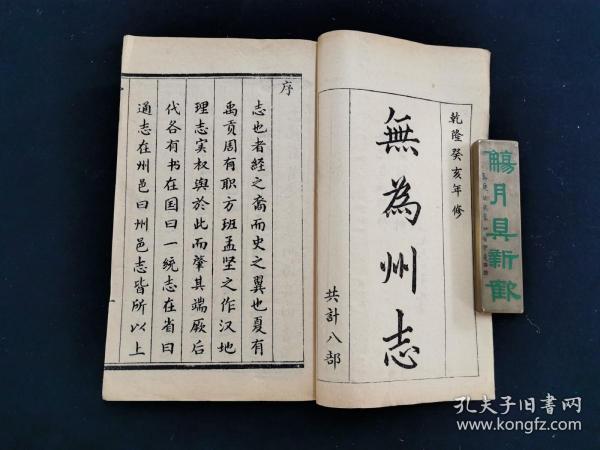 乾隆癸亥年修
無為州志
共計八部
序
志也者經之裔而史之翼也夏有
禹贡周有职方班孟坚之作汉地
理志实权舆於此而肇其端厥后
代各有书在国曰一统志在省曰
通志在州邑曰州邑志皆所以上
月具新
孔夫子旧书网
www.kongfz.com